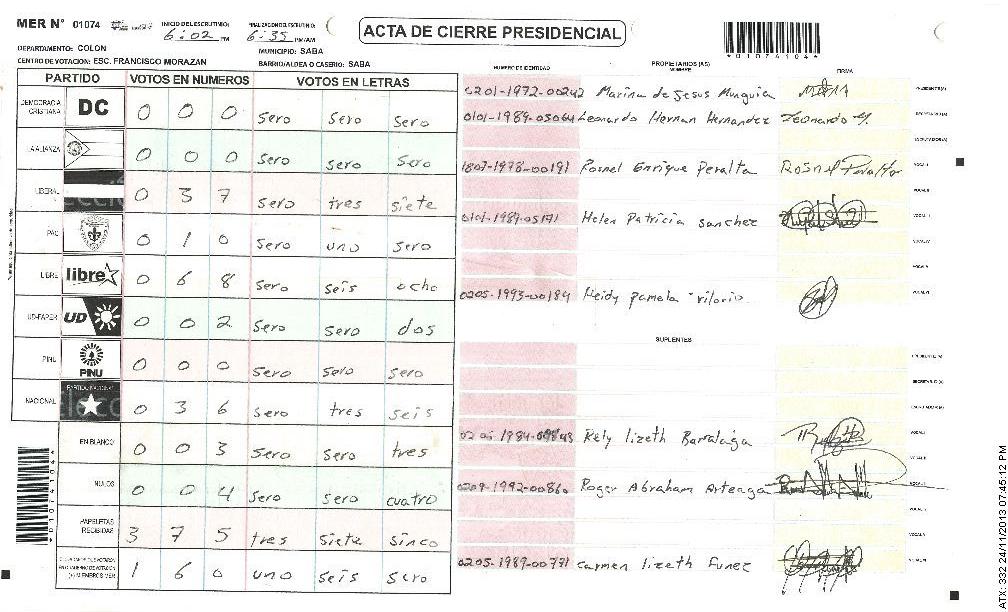 MER N° 01074 INICIO DEL ESCRUTINIO: 6:02 PM FINALIZACION ESCRUTINIO: 6:35 PM/AM
ACTA DE CIERRE PRESIDENCIAL
*01074104*
DEPARTAMENTO: COLON MUNICIPIO: SABA
CENTRO DE VOTACION: ESC. FRANCISCO MORAZAN BARRIO/ALDEA O CASERIO: SABA
PARTIDO VOTOS EN NUMEROS VOTOS EN LETRAS
DEMOCRACIA CRISTIANA DC 0 0 0 sero sero sero
LA ALIANZA 0 0 0 sero sero sero
LIBERAL 0 3 7 sero tres siete
PAC 0 1 0 sero uno sero
LIBRE libre 0 6 8 sero seis ocho
UD-FAPER UD 0 0 2 sero sero dos
PINU PINU 0 0 0 sero sero sero
NACIONAL PARTIDO NACIONAL 0 3 6 sero tres seis
EN BLANCO 0 0 3 sero sero tres
NULOS 0 0 4 sero sero cuatro
PAPELETAS RECIBIDAS 3 7 5 tres siete sinco
(+) MIEMBROS MER 1 6 0 uno seis sero
*01074104*
NUMERO DE IDENTIDAD PROPIETARIOS (AS) NOMBRE FIRMA
0201-1972-00242 Marina de Jesus Munguia PRESIDENTE(A)
0101-1989-03064 Leonardo Hernan Hernandez Leonardo H. SECRETARIO(A)
ESCRUTADOR(A)
1807-1978-00191 Rosnel Enrique Peralta Rosnel Peralta VOCAL I
VOCAL II
0101-1989-03191 Helen Patricia sanchez VOCAL III
VOCAL IV
VOCAL V
0205-1993-00184 Heidy pamela vilorio VOCAL VI
SUPLENTES
PRESIDENTE(A)
SECRETARIO(A)
ESCRUTADOR(A)
Kely lizeth Barralaga VOCAL I
VOCAL II
0209-1992-00860 Roger Abraham Arteaga VOCAL III
VOCAL V
0205-1989-00771 carmen lizeth Funez VOCAL VI
ATX: 332 24/11/2013 07:45:12 PM